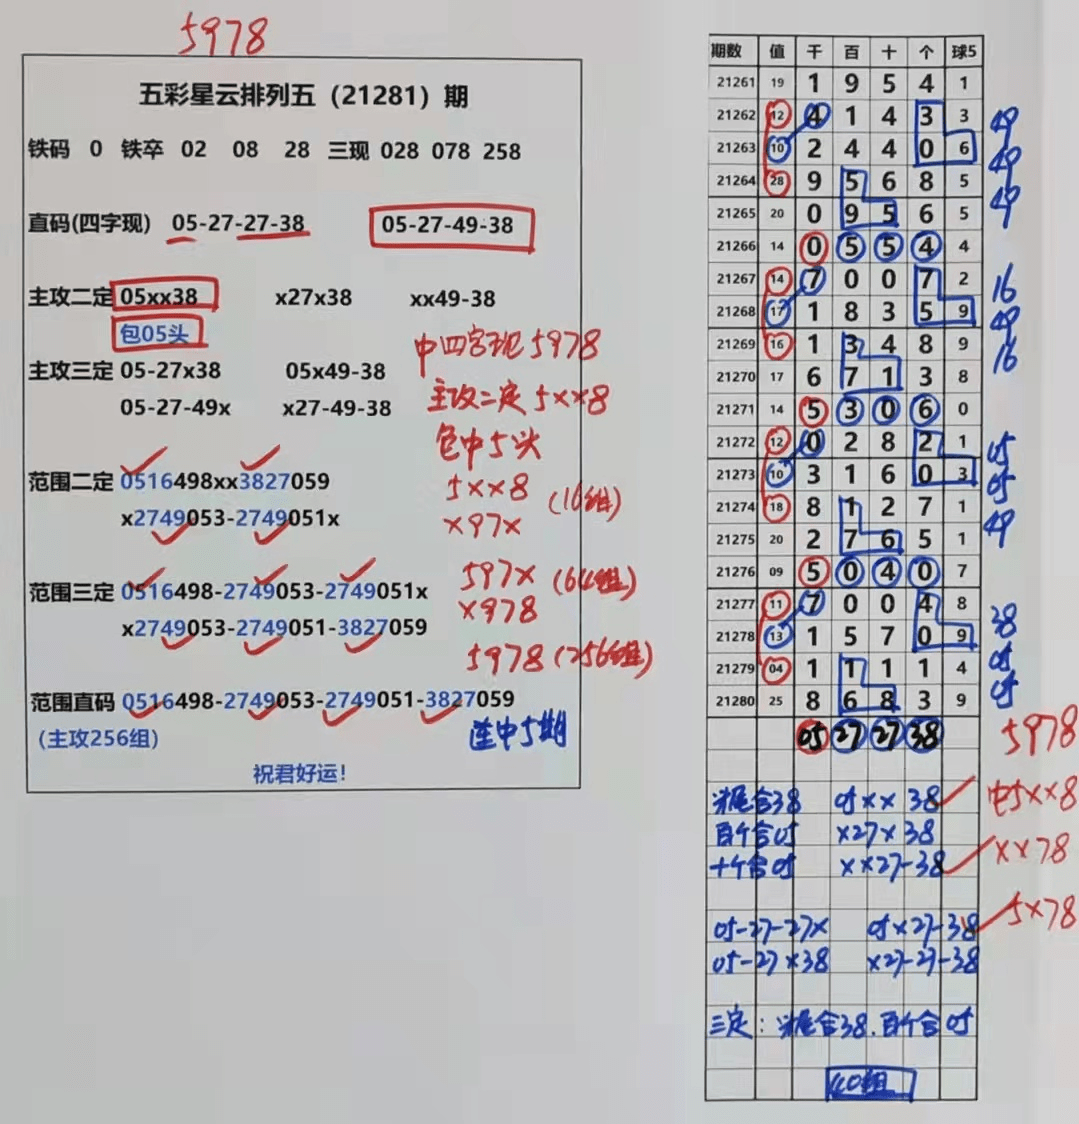 5978
五彩星云排列五（21281）期
铁码 0 铁卒 02 08 28 三现 028 078 258
直码(四字现) 05-27-27-38 05-27-49-38
主攻二定 05xx38 x27x38 xx49-38
包05头
中四字现5978
主攻三定 05-27x38 05x49-38
主攻二定5××8
05-27-49x x27-49-38
包中5头
范围二定 0516498xx3827059
5××8 (16组)
x2749053-2749051x
×97×
范围三定 0516498-2749053-2749051x
597× (64组)
x2749053-2749051-3827059
×978
5978 (256组)
范围直码 0516498-2749053-2749051-3827059
(主攻256组)
连中5期
祝君好运!
期数 值 千 百 十 个 球5
21261 19 1 9 5 4 1
21262 12 4 1 4 3 3 49
21263 10 2 4 4 0 6 49
21264 28 9 5 6 8 5 49
21265 20 0 9 5 6 5
21266 14 0 5 5 4 4
21267 14 7 0 0 7 2 16
21268 17 1 8 3 5 9 49
21269 16 1 3 4 8 9 16
21270 17 6 7 1 3 8
21271 14 5 3 0 6 0
21272 12 0 2 8 2 1 05
21273 10 3 1 6 0 3 05
21274 18 8 1 2 7 1 49
21275 20 2 7 6 5 1
21276 09 5 0 4 0 7
21277 11 7 0 0 4 8 38
21278 13 1 5 7 0 9 05
21279 04 1 1 1 1 4 05
21280 25 8 6 8 3 9
05 27 27 38 5978
尾合38 05×× 38 中5××8
百个合05 ×27×38
十个合05 ××27-38 ××78
05-27-27× 05×27-38 5×78
05-27×38 ×27-27-38
三定: 尾合38.百个合05
40组